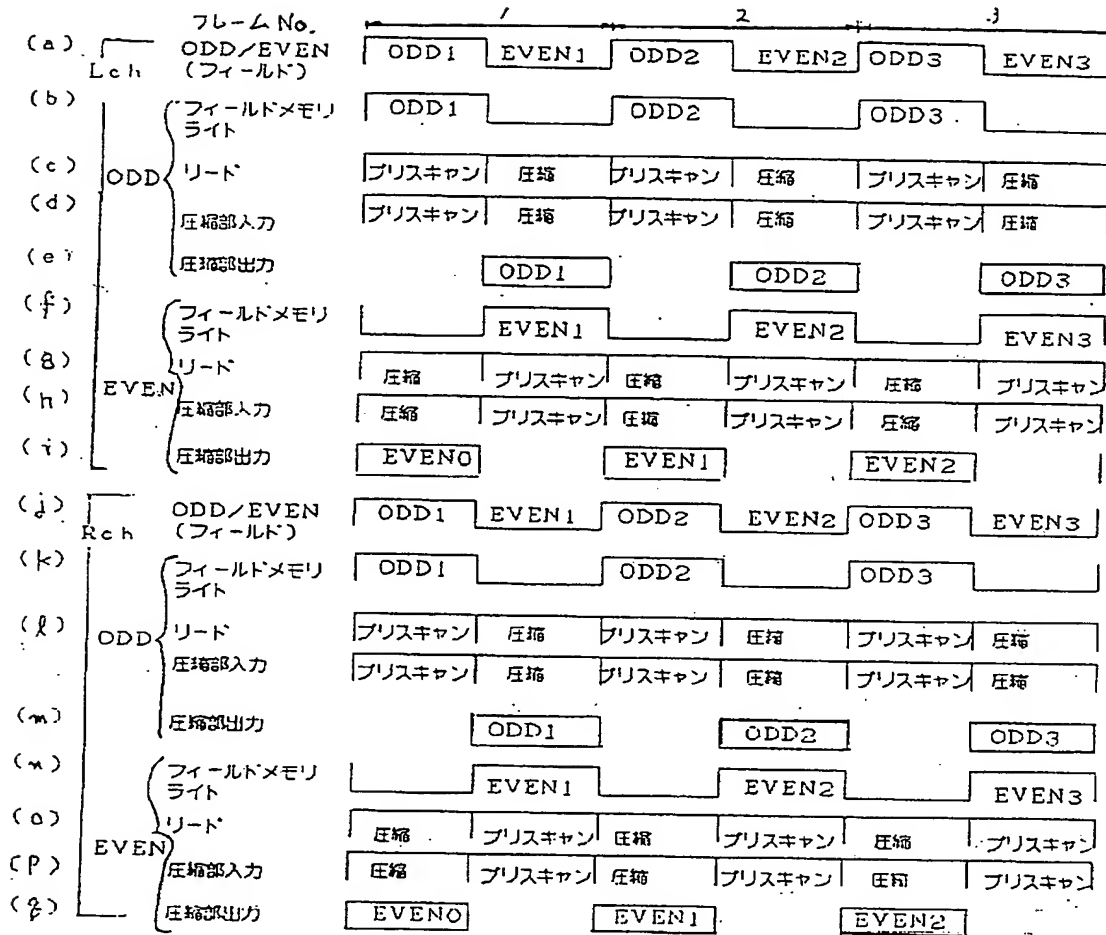 フレーム No. 1 2 3
(a) Lch ODD/EVEN (フィールド) ODD1 EVEN1 ODD2 EVEN2 ODD3 EVEN3
(b) フィールドメモリ ライト ODD1 ODD2 ODD3
(c) ODD リード プリスキャン 圧縮 プリスキャン 圧縮 プリスキャン 圧縮
(d) 圧縮部入力 プリスキャン 圧縮 プリスキャン 圧縮 プリスキャン 圧縮
(e) 圧縮部出力 ODD1 ODD2 ODD3
(f) フィールドメモリ ライト EVEN1 EVEN2 EVEN3
(g) EVEN リード 圧縮 プリスキャン 圧縮 プリスキャン 圧縮 プリスキャン
(h) 圧縮部入力 圧縮 プリスキャン 圧縮 プリスキャン 圧縮 プリスキャン
(i) 圧縮部出力 EVEN0 EVEN1 EVEN2
(j) Rch ODD/EVEN (フィールド) ODD1 EVEN1 ODD2 EVEN2 ODD3 EVEN3
(k) フィールドメモリ ライト ODD1 ODD2 ODD3
(l) ODD リード プリスキャン 圧縮 プリスキャン 圧縮 プリスキャン 圧縮
圧縮部入力 プリスキャン 圧縮 プリスキャン 圧縮 プリスキャン 圧縮
(m) 圧縮部出力 ODD1 ODD2 ODD3
(n) フィールドメモリ ライト EVEN1 EVEN2 EVEN3
(o) EVEN リード 圧縮 プリスキャン 圧縮 プリスキャン 圧縮 プリスキャン
(p) 圧縮部入力 圧縮 プリスキャン 圧縮 プリスキャン 圧縮 プリスキャン
(q) 圧縮部出力 EVEN0 EVEN1 EVEN2